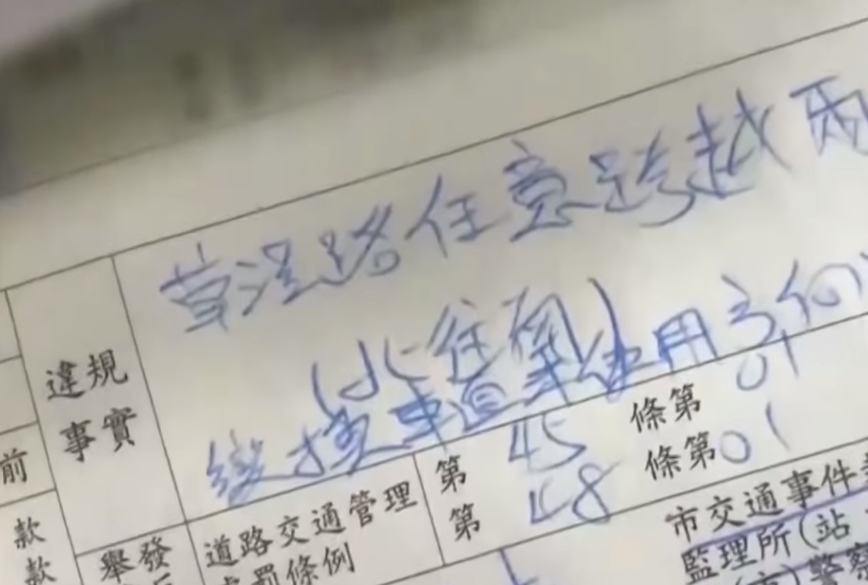 違規事實
營涇路任意跨越兩
(北往南)
變換車道未使用方向
前
款
款
舉發
道路交通管理
處罰條例
第 45 條第 01
第 48 條第 01
市交通事件
監理所(站
警察